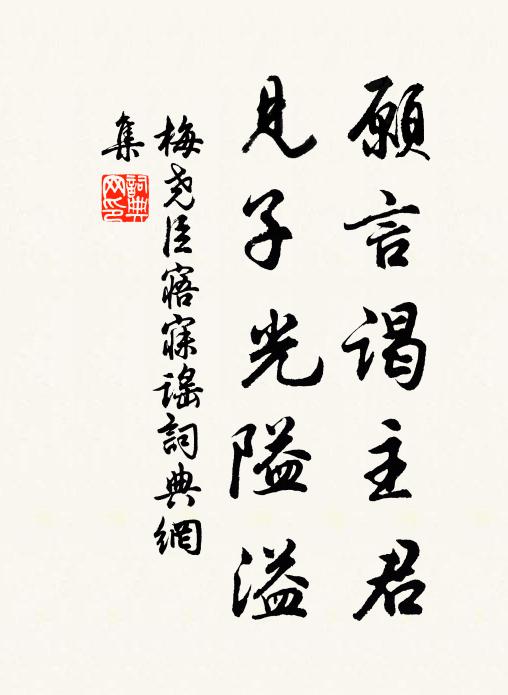 願言謁主君
見子光隘溢
梅尭臣寤寐謡詞典網
集
詞典
网印